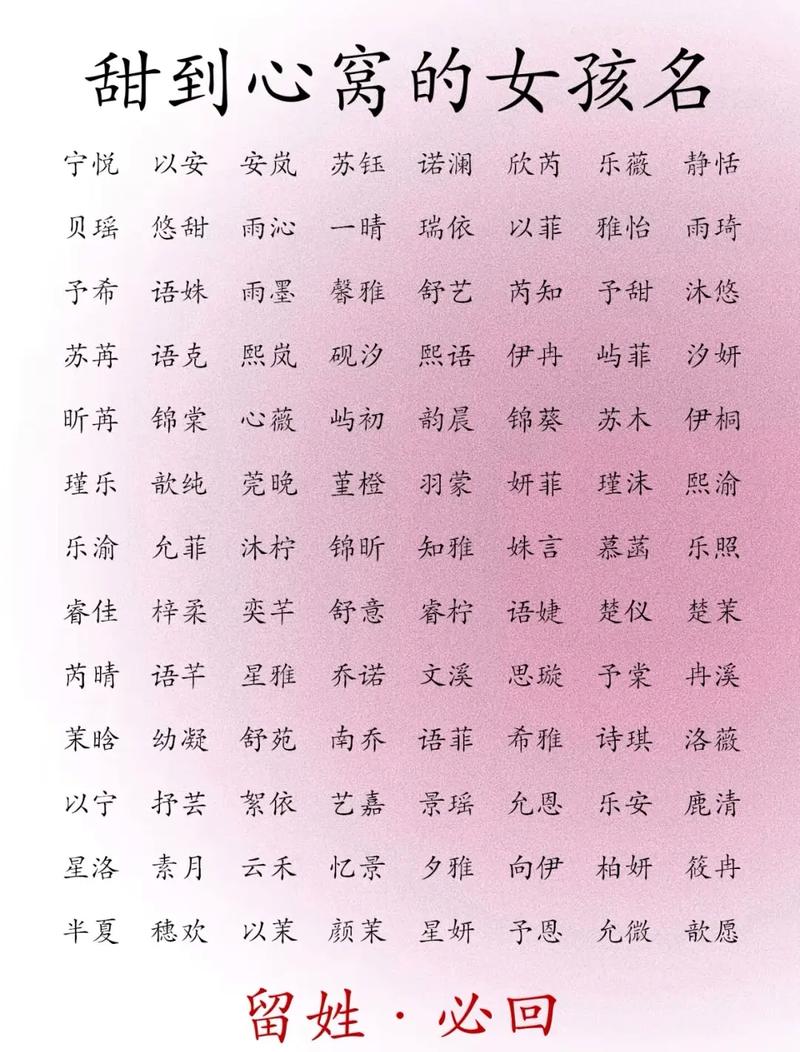 甜到心窝的女孩名
宁悦 以安 安岚 苏钰 诺澜 欣芮 乐薇 静恬
贝瑶 悠甜 雨沁 一晴 瑞依 以菲 雅怡 雨琦
予希 语姝 雨墨 馨雅 舒艺 芮知 予甜 沐悠
苏苒 语克 熙岚 砚汐 熙语 伊冉 屿菲 汐妍
昕苒 锦棠 心薇 屿初 韵晨 锦葵 苏木 伊桐
瑾乐 歆纯 莞晚 堇橙 羽蒙 妍菲 瑾沫 熙渝
乐渝 允菲 沐柠 锦昕 知雅 姝言 慕菡 乐照
睿佳 梓柔 奕芊 舒意 睿柠 语婕 楚仪 楚茉
芮晴 语芊 星雅 乔诺 文溪 思璇 予棠 冉溪
茉晗 幼凝 舒苑 南乔 语菲 希雅 诗琪 洛薇
以宁 抒芸 絮依 艺嘉 景瑶 允恩 乐安 鹿清
星洛 素月 云禾 忆景 夕雅 向伊 柏妍 筱冉
半夏 穗欢 以茉 颜茉 星妍 予恩 允微 歆愿
留姓·必回